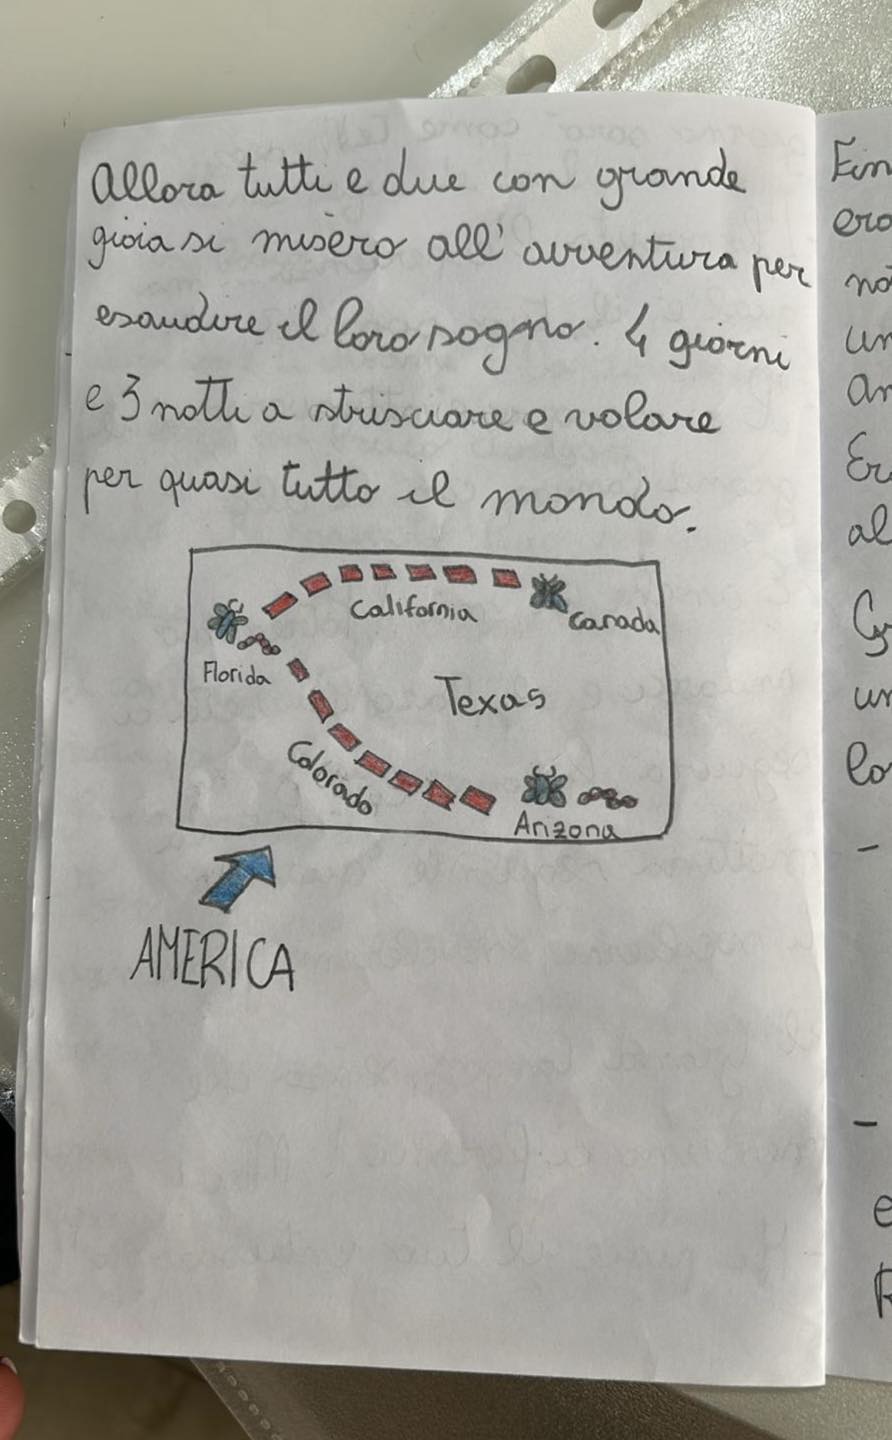 Allora tutti e due con grande
gioia si misero all'avventura per
esaudire il loro sogno. 4 giorni
e 3 notti a strisciare e volare
per quasi tutto il mondo.
California
Canada
Florida
Texas
Colorado
Arizona
AMERICA